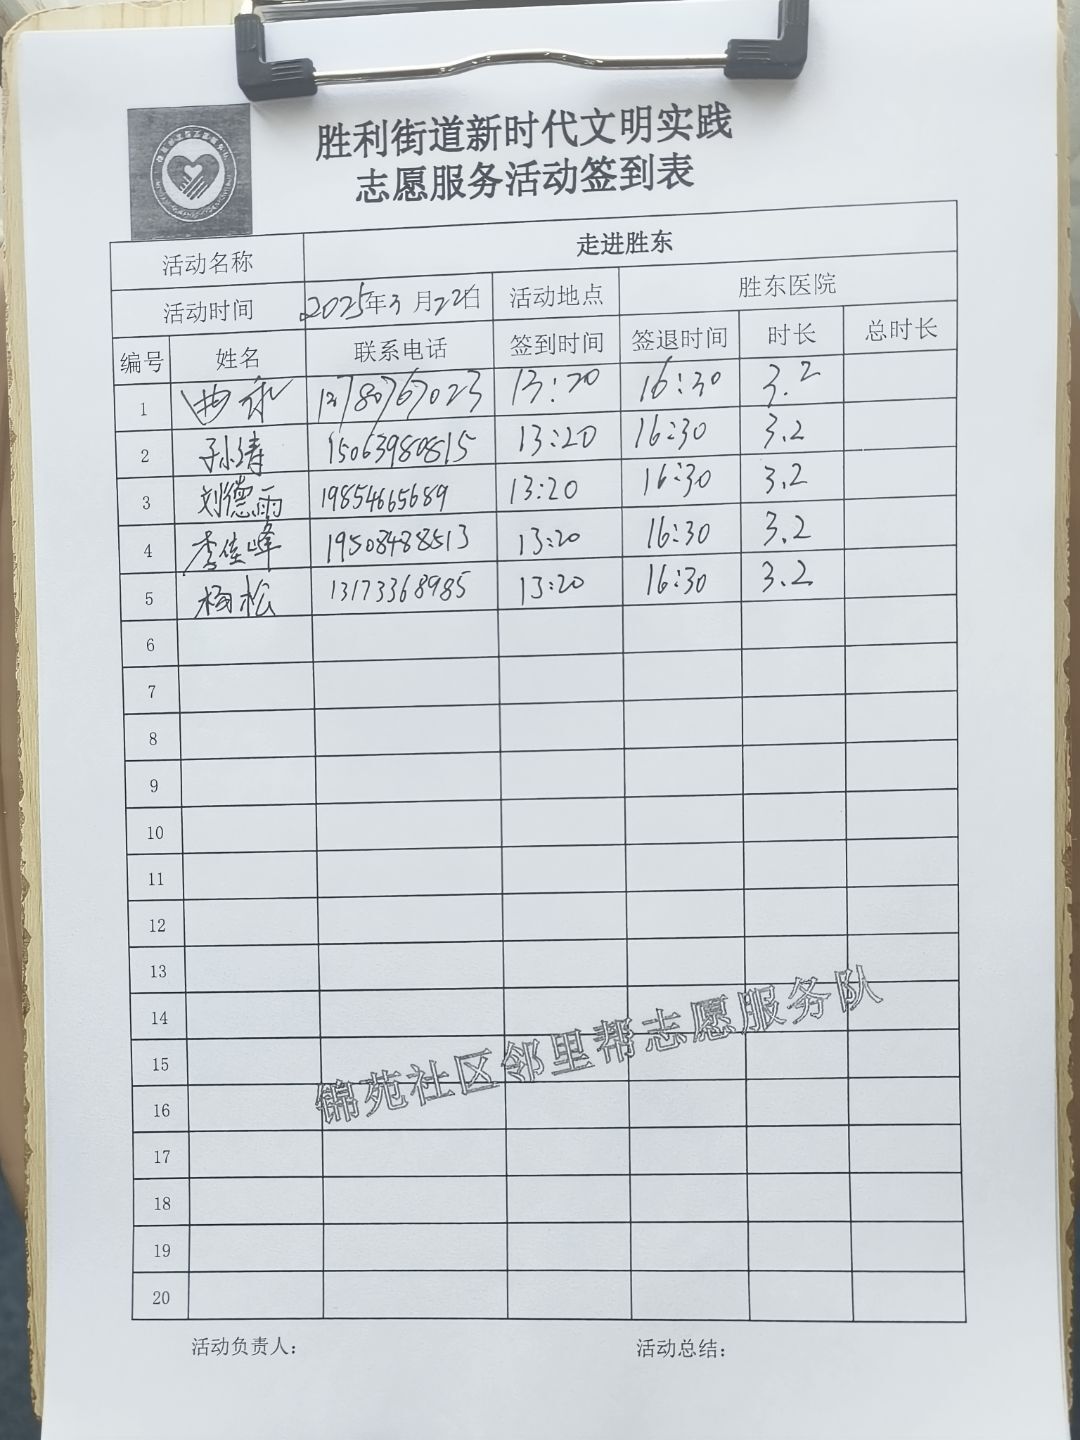 胜利街道新时代文明实践
志愿服务活动签到表
活动名称 走进胜东
活动时间 2025年3月22日 活动地点 胜东医院
编号 姓名 联系电话 签到时间 签退时间 时长 总时长
1 曲永 13780767023 13:20 16:30 3.2
2 孙涛 15063980815 13:20 16:30 3.2
3 刘德雨 19854665689 13:20 16:30 3.2
4 李佳峰 19508488513 13:20 16:30 3.2
5 杨松 13173368985 13:20 16:30 3.2
6
7
8
9
10
11
12
13
14
15
16
17
18
19
20
锦苑社区邻里帮志愿服务队
活动负责人: 活动总结: